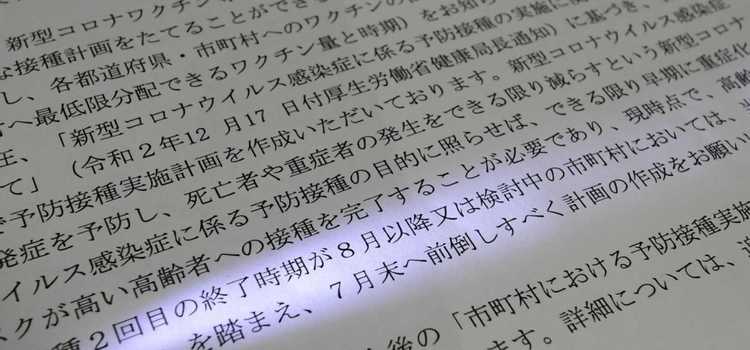 新型コロナワクチン
な接種計画をたてることができ
し、各都道府県・市町村へのワクチンの
へ最低限分配できるワクチン量と時期）をお知ら
「新型コロナウイルス感染症に係る予防接種の実施に
て」（令和２年12 月17 日付厚生労働省健康局長通知）に基づき、
予防接種実施計画を作成いただいております。新型コロナウイルス感染症
発症を予防し、死亡者や重症者の発生をできる限り減らすという新型コロナ
イルス感染症に係る予防接種の目的に照らせば、できる限り早期に重症化
スクが高い高齢者への接種を完了することが必要であり、現時点で、高齢
種２回目の終了時期が８月以降又は検討中の市町村においては、
を踏まえ、７月末へ前倒しすべく計画の作成をお願い
後の「市町村における予防接種実施
ます。詳細については、